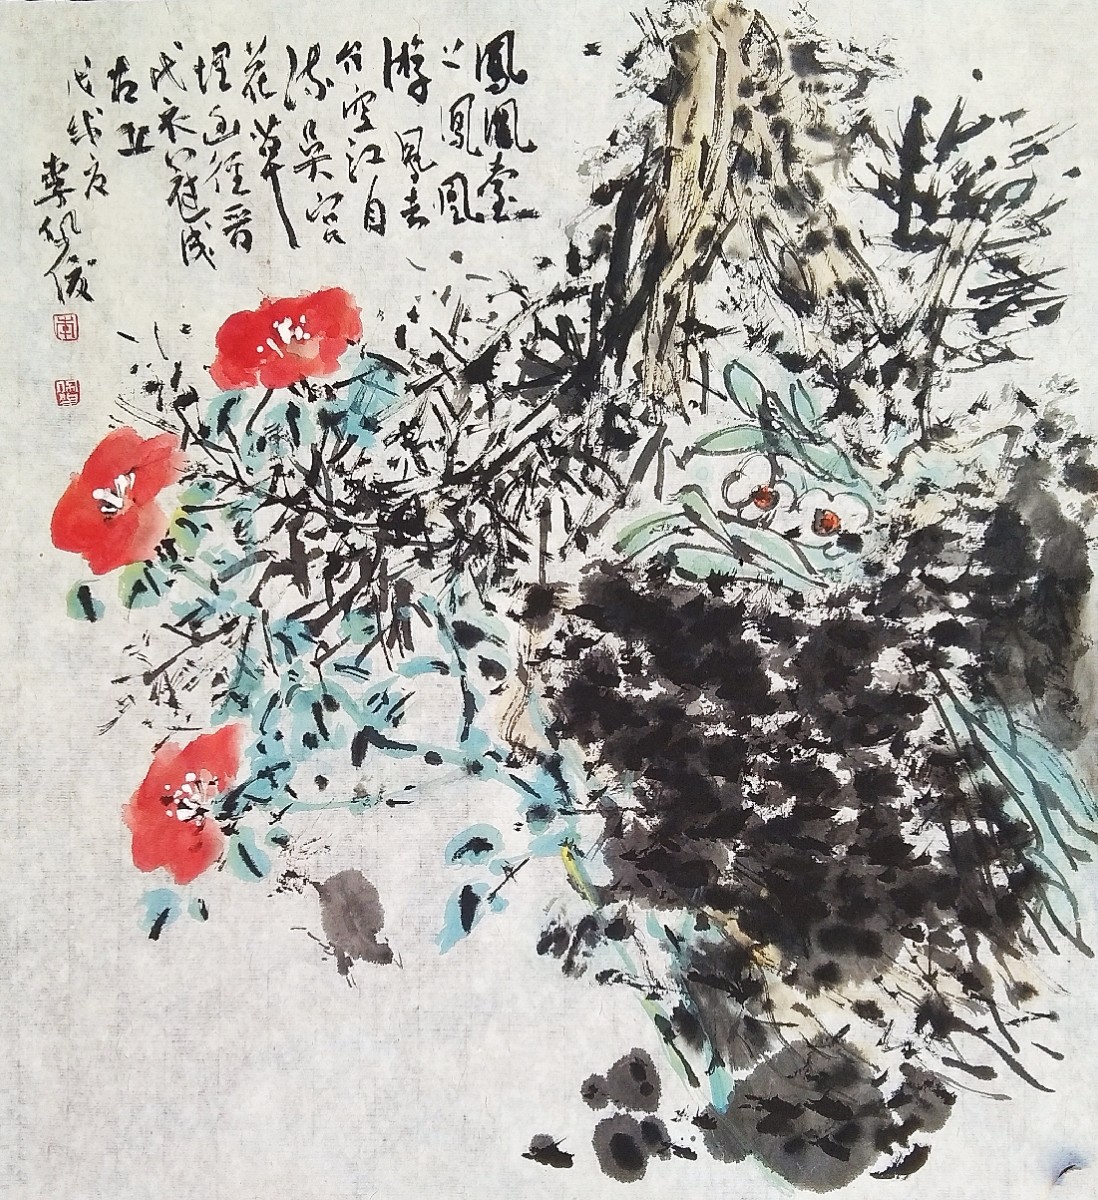 鳳凰臺
上鳳凰
游鳳去
台空江自
流吳宮
花草
埋幽徑晋
代衣冠成
古丘
戊戌
李